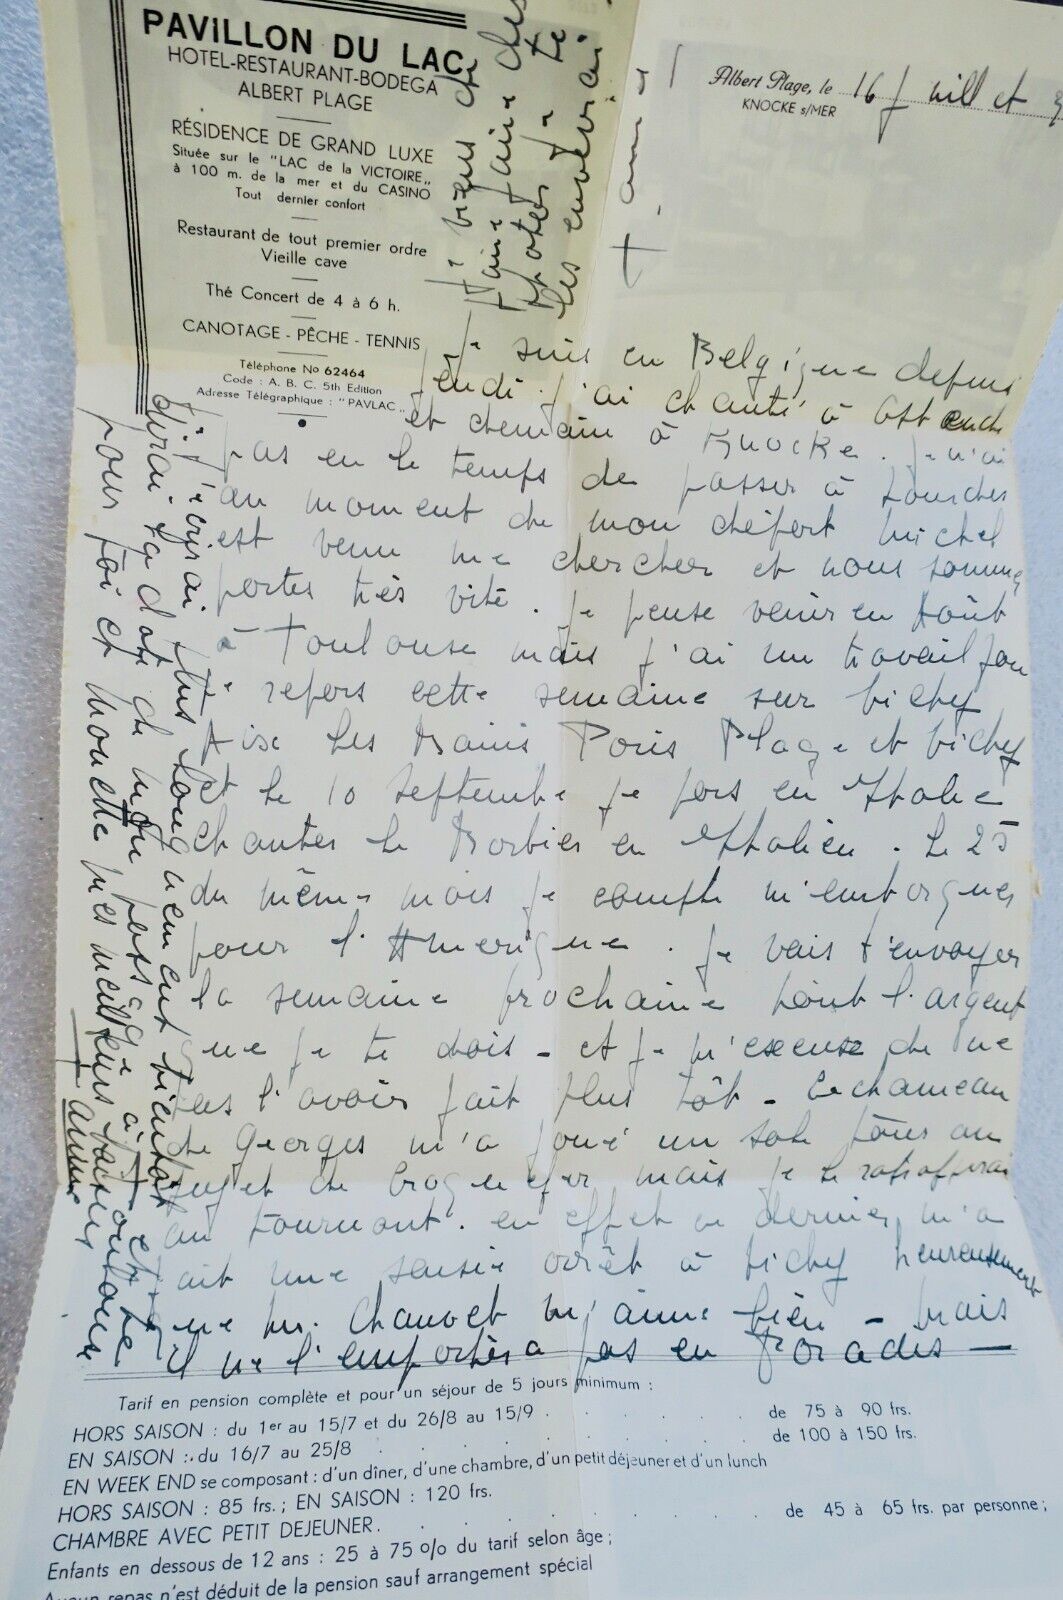 PAVILLON DU LAC
HOTEL-RESTAURANT-BODEGA
ALBERT PLAGE
RÉSIDENCE DE GRAND LUXE
Située sur le "LAC de la VICTOIRE„
à 100 m. de la mer et du CASINO
Tout dernier confort
Restaurant de tout premier ordre
Vieille cave
Thé Concert de 4 à 6 h.
CANOTAGE - PÊCHE - TENNIS
Téléphone No 62464
Code : A. B. C. 5th Edition
Adresse Télégraphique : "PAVLAC„
Albert Plage, le 16 Juillet
KNOCKE s/MER
Je suis en Belgique depuis
jeudi. J'ai chanté à Ostende
et demain à Knocke. Je n'ai
pas eu le temps de passer à
au moment de mon départ Michel
est venu me chercher et nous sommes
partis très vite. Je pense venir en Août
à Toulouse mais j'ai un travail fou
je repars cette semaine sur Vichy
Aix Les Bains Paris Plage et Vichy
et le 10 Septembre je pars en Italie
chanter le Barbier en Italien. Le 25
du même mois je compte m'embarquer
pour l'Amérique. Je vais t'envoyer
la semaine prochaine tout l'argent
que je te dois - et je m'excuse de ne
pas l'avoir fait plus tôt - Le chameau
de Georges m'a joué un sale tour au
sujet de mais je le rattraperai
au tournant. en effet ce dernier m'a
fait une saisie arrêt à Vichy heureusement
que Mr. Chauvet m'aime bien - Mais
il ne l'emportera pas en Paradis -
Je viens de
faire faire des
photos je te
les enverrai
T. aime
Je t'écrirai plus longuement bientôt et te
dirai la date de mon passage à Toulouse
pour toi et Mouette mes meilleurs baisers
T. aime
Tarif en pension complète et pour un séjour de 5 jours minimum :
HORS SAISON : du 1er au 15/7 et du 26/8 au 15/9 . . . . . . de 75 à 90 frs.
EN SAISON : du 16/7 au 25/8 . . . . . . de 100 à 150 frs.
EN WEEK END se composant : d'un dîner, d'une chambre, d'un petit déjeuner et d'un lunch
HORS SAISON : 85 frs. ; EN SAISON : 120 frs.
CHAMBRE AVEC PETIT DEJEUNER . . . . . . de 45 à 65 frs. par personne ;
Enfants en dessous de 12 ans : 25 à 75 o/o du tarif selon âge ;
Aucun repas n'est déduit de la pension sauf arrangement spécial